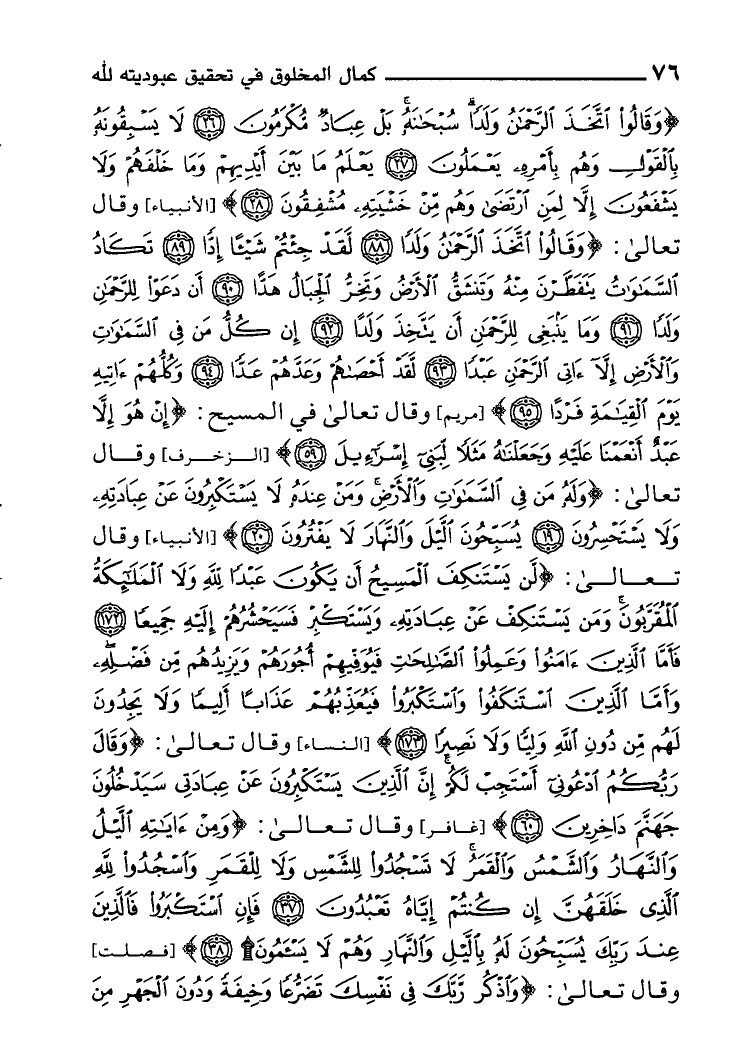 ٧٦ كمال المخلوق في تحقيق عبوديته لله
﴿وَقَالُوا۟ ٱتَّخَذَ ٱلرَّحْمَٰنُ وَلَدًا ۗ سُبْحَٰنَهُۥ ۚ بَلْ عِبَادٌ مُّكْرَمُونَ ۝٢٦ لَا يَسْبِقُونَهُۥ
بِٱلْقَوْلِ وَهُم بِأَمْرِهِۦ يَعْمَلُونَ ۝٢٧ يَعْلَمُ مَا بَيْنَ أَيْدِيهِمْ وَمَا خَلْفَهُمْ وَلَا
يَشْفَعُونَ إِلَّا لِمَنِ ٱرْتَضَىٰ وَهُم مِّنْ خَشْيَتِهِۦ مُشْفِقُونَ ۝٢٨﴾ [الأنبياء] وقال
تعالىٰ: ﴿وَقَالُوا۟ ٱتَّخَذَ ٱلرَّحْمَٰنُ وَلَدًا ۝٨٨ لَّقَدْ جِئْتُمْ شَيْـًٔا إِدًّا ۝٨٩ تَكَادُ
ٱلسَّمَٰوَٰتُ يَتَفَطَّرْنَ مِنْهُ وَتَنشَقُّ ٱلْأَرْضُ وَتَخِرُّ ٱلْجِبَالُ هَدًّا ۝٩٠ أَن دَعَوْا۟ لِلرَّحْمَٰنِ
وَلَدًا ۝٩١ وَمَا يَنۢبَغِى لِلرَّحْمَٰنِ أَن يَتَّخِذَ وَلَدًا ۝٩٢ إِن كُلُّ مَن فِى ٱلسَّمَٰوَٰتِ
وَٱلْأَرْضِ إِلَّآ ءَاتِى ٱلرَّحْمَٰنِ عَبْدًا ۝٩٣ لَّقَدْ أَحْصَىٰهُمْ وَعَدَّهُمْ عَدًّا ۝٩٤ وَكُلُّهُمْ ءَاتِيهِ
يَوْمَ ٱلْقِيَٰمَةِ فَرْدًا ۝٩٥﴾ [مريم] وقال تعالىٰ في المسيح: ﴿إِنْ هُوَ إِلَّا
عَبْدٌ أَنْعَمْنَا عَلَيْهِ وَجَعَلْنَٰهُ مَثَلًا لِّبَنِىٓ إِسْرَٰٓءِيلَ ۝٥٩﴾ [الزخرف] وقال
تعالىٰ: ﴿وَلَهُۥ مَن فِى ٱلسَّمَٰوَٰتِ وَٱلْأَرْضِ ۚ وَمَنْ عِندَهُۥ لَا يَسْتَكْبِرُونَ عَنْ عِبَادَتِهِۦ
وَلَا يَسْتَحْسِرُونَ ۝١٩ يُسَبِّحُونَ ٱلَّيْلَ وَٱلنَّهَارَ لَا يَفْتُرُونَ ۝٢٠﴾ [الأنبياء] وقال
تعالىٰ: ﴿لَّن يَسْتَنكِفَ ٱلْمَسِيحُ أَن يَكُونَ عَبْدًا لِّلَّهِ وَلَا ٱلْمَلَٰٓئِكَةُ
ٱلْمُقَرَّبُونَ ۚ وَمَن يَسْتَنكِفْ عَنْ عِبَادَتِهِۦ وَيَسْتَكْبِرْ فَسَيَحْشُرُهُمْ إِلَيْهِ جَمِيعًا ۝١٧٢
فَأَمَّا ٱلَّذِينَ ءَامَنُوا۟ وَعَمِلُوا۟ ٱلصَّٰلِحَٰتِ فَيُوَفِّيهِمْ أُجُورَهُمْ وَيَزِيدُهُم مِّن فَضْلِهِۦ ۖ
وَأَمَّا ٱلَّذِينَ ٱسْتَنكَفُوا۟ وَٱسْتَكْبَرُوا۟ فَيُعَذِّبُهُمْ عَذَابًا أَلِيمًا وَلَا يَجِدُونَ
لَهُم مِّن دُونِ ٱللَّهِ وَلِيًّا وَلَا نَصِيرًا ۝١٧٣﴾ [النساء] وقال تعالىٰ: ﴿وَقَالَ
رَبُّكُمُ ٱدْعُونِىٓ أَسْتَجِبْ لَكُمْ ۚ إِنَّ ٱلَّذِينَ يَسْتَكْبِرُونَ عَنْ عِبَادَتِى سَيَدْخُلُونَ
جَهَنَّمَ دَاخِرِينَ ۝٦٠﴾ [غافر] وقال تعالىٰ: ﴿وَمِنْ ءَايَٰتِهِ ٱلَّيْلُ
وَٱلنَّهَارُ وَٱلشَّمْسُ وَٱلْقَمَرُ ۚ لَا تَسْجُدُوا۟ لِلشَّمْسِ وَلَا لِلْقَمَرِ وَٱسْجُدُوا۟ لِلَّهِ
ٱلَّذِى خَلَقَهُنَّ إِن كُنتُمْ إِيَّاهُ تَعْبُدُونَ ۝٣٧ فَإِنِ ٱسْتَكْبَرُوا۟ فَٱلَّذِينَ
عِندَ رَبِّكَ يُسَبِّحُونَ لَهُۥ بِٱلَّيْلِ وَٱلنَّهَارِ وَهُمْ لَا يَسْـَٔمُونَ ۩ ۝٣٨﴾ [فصلت]
وقال تعالىٰ: ﴿وَٱذْكُر رَّبَّكَ فِى نَفْسِكَ تَضَرُّعًا وَخِيفَةً وَدُونَ ٱلْجَهْرِ مِنَ